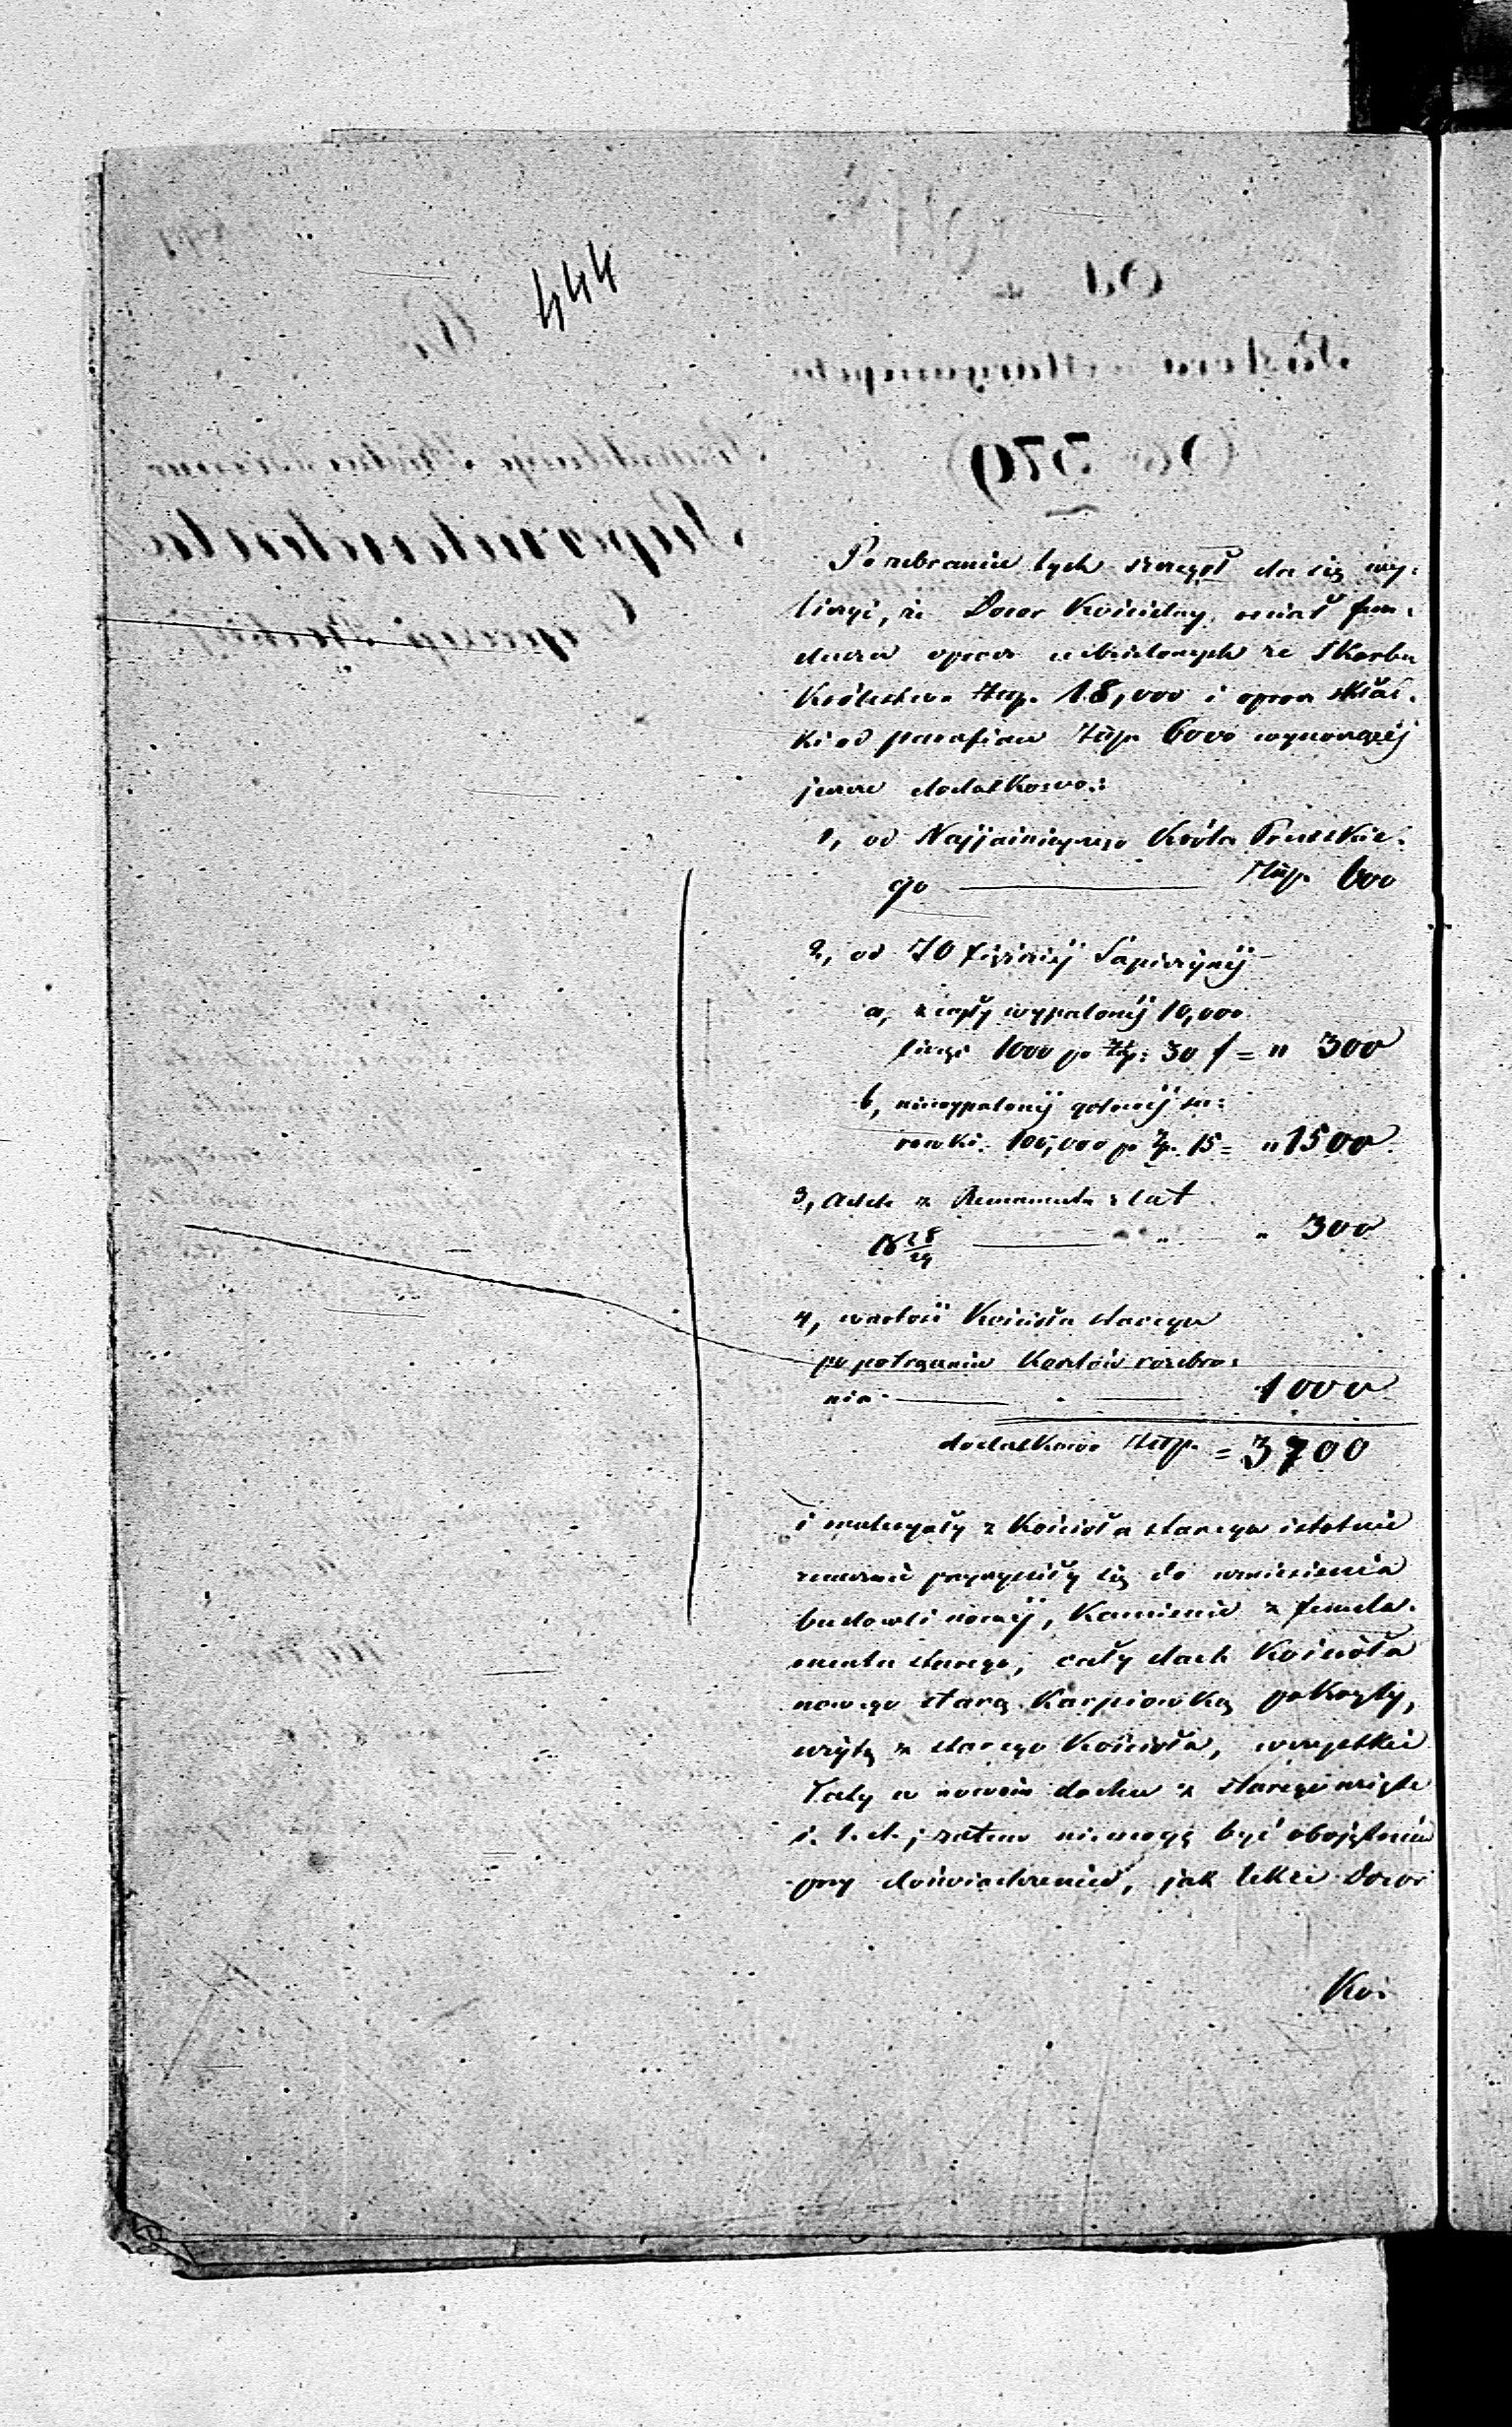 444
Po zebraniu tych szczegół da się wy-
liczyć, że Dozor Kościelny, miał fun-
dusze oprocz udzielonych ze Skarbu
Królestwa Złp. 18,000 i oprocz skład-
ki od parafian Złp. 6000 wynoszącéj
jeszcze dodatkowo:
1, od Najjaśniejszego Króla Pruskie-
go Złp. 600
2, od JO Xiężnéj Sapieżynéj
a, z cegły wypalonéj 10,000
licząc 1000 po Złp: 30 f = " 300
b, niewypalonéj gotowéj su-
rowki. 100,000 po Zp. 15 = " 1500
3, z Remanentu z lat
18 28/29 " " 300
4, wartość Kościoła starego
po potrąceniu Kosztów rozebra-
nia 1000
dodatkowo Złp. = 3700
i materyały z Kościoła starego istotnie
znacznie przyczyniły się do wzniesienia
budowli nowéj, Kamienie z funda-
mentu starego, cały dach Kościoła
nowego starą Karpiowką pokryty,
wziętą z starego Kościoła, wszystkie
łaty w nowem dachu z starego wzięte
i. t. d.; zatem niemogę być obojętnem
przy doświadczeniu, jak Dozor
Ko-